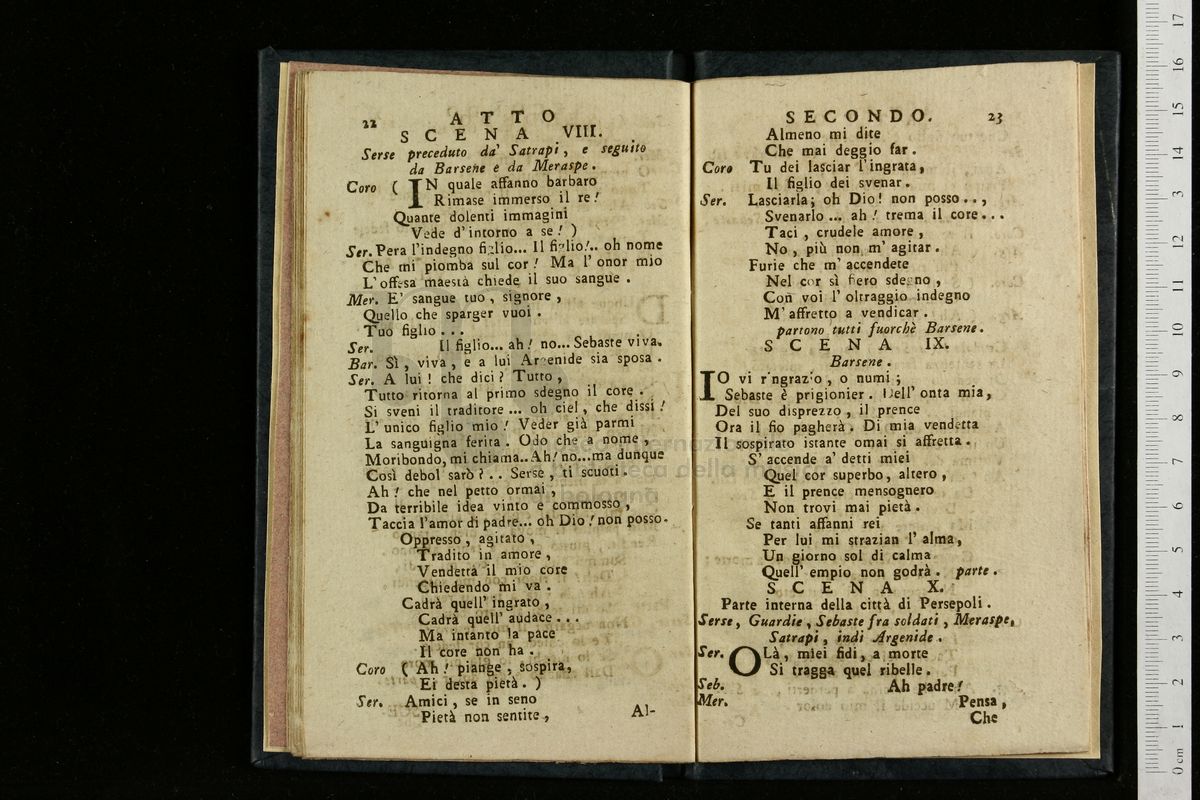 22
ATTO
SCENA VIII.
Serse preceduto da' Satrapi, e seguito
da Barsene e da Meraspe.
Coro ( IN quale affanno barbaro
Rimase immerso il re!
Quante dolenti immagini
Vede d'intorno a se! )
Ser. Pera l'indegno figlio... Il figlio!.. oh nome
Che mi piomba sul cor! Ma l'onor mio
L'offesa maestà chiede il suo sangue.
Mer. E' sangue tuo, signore,
Quello che sparger vuoi.
Tuo figlio...
Ser. Il figlio... ah! no... Sebaste viva.
Bar. Sì, viva, e a lui Argenide sia sposa.
Ser. A lui! che dici? Tutto,
Tutto ritorna al primo sdegno il core.
Si sveni il traditore... oh ciel, che dissi!
L'unico figlio mio! Veder già parmi
La sanguigna ferita. Odo che a nome,
Moribondo, mi chiama..Ah! no...ma dunque
Così debol sarò?.. Serse, ti scuoti.
Ah! che nel petto ormai,
Da terribile idea vinto e commosso,
Taccia l'amor di padre... oh Dio! non posso.
Oppresso, agitato,
Tradito in amore,
Vendetta il mio core
Chiedendo mi va.
Cadrà quell'ingrato,
Cadrà quell'audace...
Ma intanto la pace
Il core non ha.
Coro ( Ah! piange, sospira,
Ei desta pietà. )
Ser. Amici, se in seno
Pietà non sentite,
Al-
SECONDO. 23
Almeno mi dite
Che mai deggio far.
Coro Tu dei lasciar l'ingrata,
Il figlio dei svenar.
Ser. Lasciarla; oh Dio! non posso..,
Svenarlo... ah! trema il core...
Taci, crudele amore,
No, più non m'agitar.
Furie che m'accendete
Nel cor sì fiero sdegno,
Con voi l'oltraggio indegno
M'affretto a vendicar.
partono tutti fuorchè Barsene.
SCENA IX.
Barsene.
IO vi ringrazio, o numi;
Sebaste è prigionier. Dell'onta mia,
Del suo disprezzo, il prence
Ora il fio pagherà. Di mia vendetta
Il sospirato istante omai si affretta.
S'accende a' detti miei
Quel cor superbo, altero,
E il prence mensognero
Non trovi mai pietà.
Se tanti affanni rei
Per lui mi strazian l'alma,
Un giorno sol di calma
Quell'empio non godrà. parte.
SCENA X.
Parte interna della città di Persepoli.
Serse, Guardie, Sebaste fra soldati, Meraspe,
Satrapi, indi Argenide.
Ser. OLà, miei fidi, a morte
Si tragga quel ribelle.
Seb. Ah padre!
Mer. Pensa,
Che